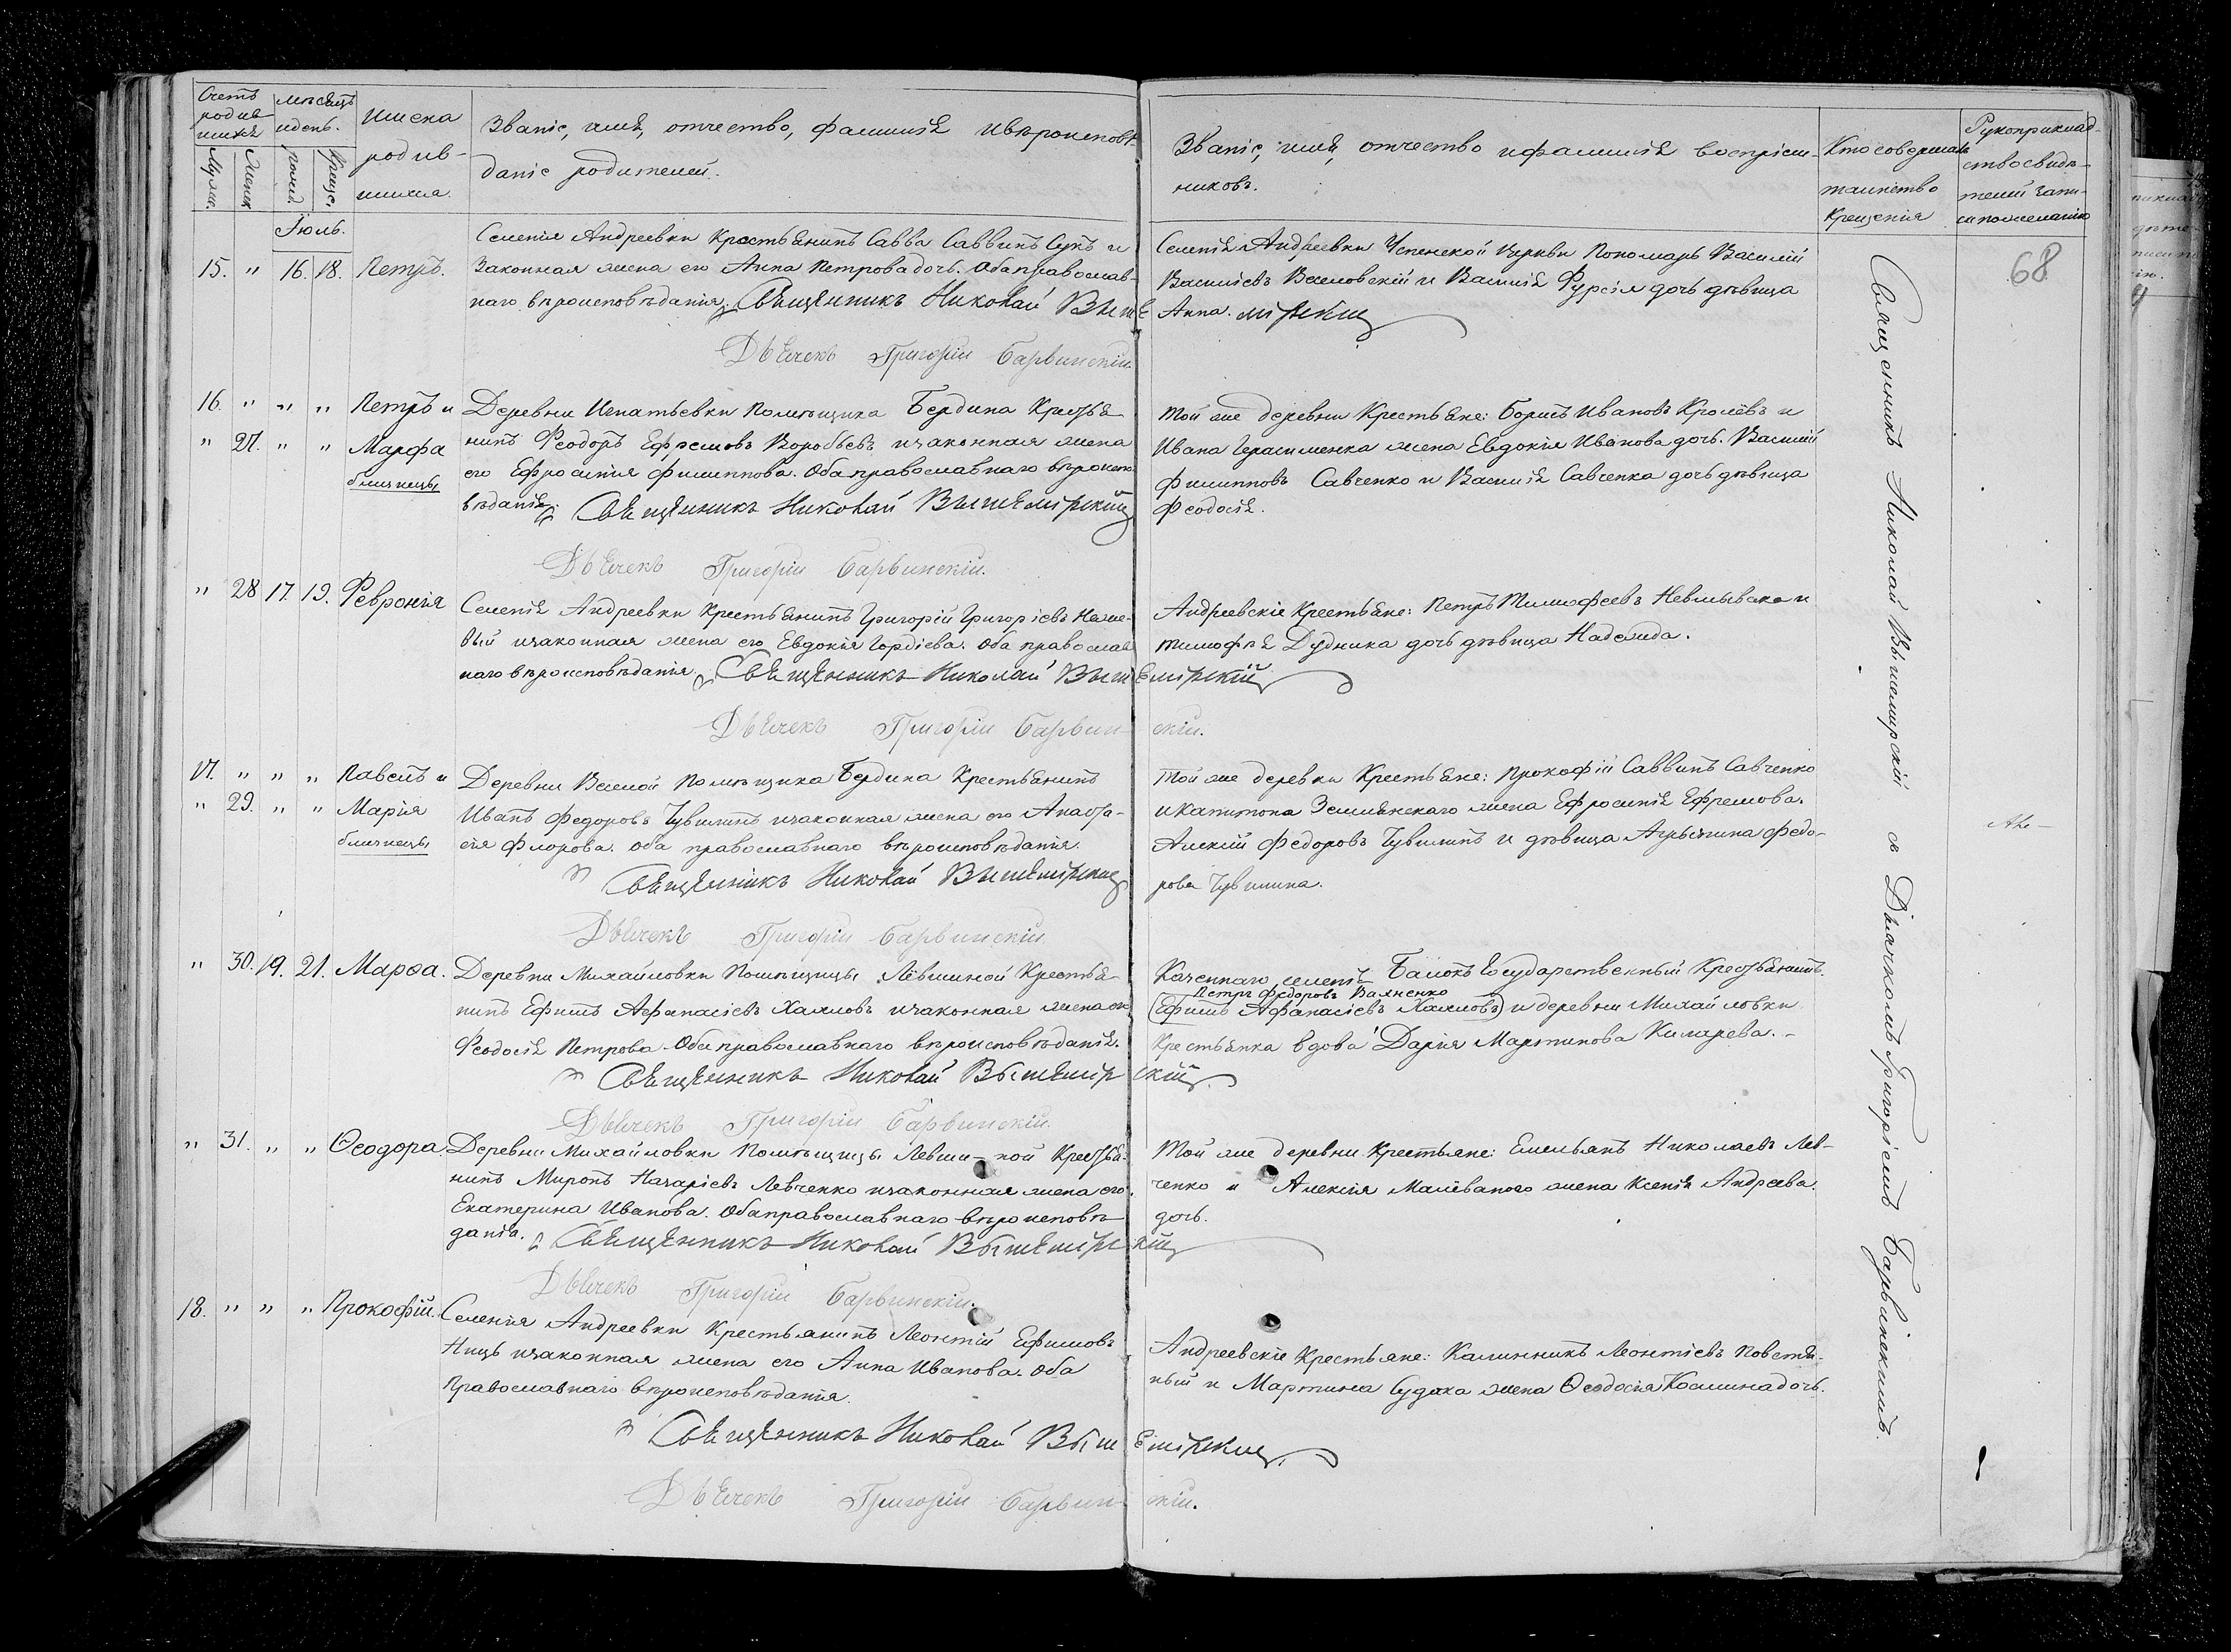 Счетъ родив-шихся
мѣсяцъ и день.
Имена родив-шихся.
Званіе, имя, отчество, фамилія и вѣроисповѣ-
даніе родителей.
Званіе, имя, отчество и фамилія воспріем-
никовъ.
Кто совершалъ
таинство
крещенія
Рукоприклад-
ство свидѣ-
телей записи
по желанію
Муж.
Женск.
рожд.
Крещ.
68
Іюль.
15. " 16. 18. Петръ.
Селенія Андреевки Крестьянинъ Савва Саввинъ Сукъ и
Законная жена его Анна Петрова дочь. Оба православ-
наго вѣроисповѣданія. Священникъ Николай Выше
мірскій
Дьячекъ Григорій Барвинскій.
Селенія Андреевки Успенской Церкви Пономарь Василій
Василіевъ Веселовскій и Василія Фурсія дочь дѣвица
Анна.
16. " " " Петръ и
" 27. " " Марфа
близнецы
Деревни Игнатьевки Помѣщика Бердина Крестья-
нинъ Феодоръ Ефремовъ Воробьевъ и законная жена
его Ефросинія Филиппова. Оба православнаго вѣроиспо-
вѣданія. Священникъ Николай Вышемірскій
Дьячекъ Григорій Барвинскій.
Той же деревни Крестьяне: Борисъ Ивановъ Кролёвъ и
Ивана Герасименка жена Евдокія Иванова дочь. Василій
Филипповъ Савченко и Василія Савченка дочь дѣвица
Феодосія.
" 28 17. 19. Февронія
Селенія Андреевки Крестьянинъ Григорій Григоріевъ
вый и законная жена его Евдокія Гордіева. Оба православ
наго вѣроисповѣданія. Священникъ Николай Вышемірскій
Дьячекъ Григорій Барвинскій.
Андреевскіе Крестьяне: Петръ Тимофеевъ Невмывака и
Тимофея Дудника дочь дѣвица Надежда.
17. " " " Павелъ и
" 29. " " Марія
близнецы
Деревни Веселой Помѣщика Бердина Крестьянинъ
Иванъ Федоровъ Чувилинъ и законная жена его Анаста-
сія Флорова. Оба православнаго вѣроисповѣданія.
Священникъ Николай Вышемірскій
Дьячекъ Григорій Барвинскій
Той же деревни Крестьяне: Прокофій Саввинъ Савченко
и Капитона Землянскаго жена Ефросинія Ефремова.
Алексій Федоровъ Чувилинъ и дѣвица Агрипина Федо-
рова Чувилина.
" 30. 19. 21. Марѳа.
Деревни Михайловки Помѣщицы Лёвшиной Крестья-
нинъ Ефимъ Афанасіевъ Хахловъ и законная жена его
Феодосія Петрова. Оба православнаго вѣроисповѣданія.
Священникъ Николай Вышемірскій
Дьячекъ Григорій Барвинскій.
Казеннаго селенія Балокъ Государственный Крестьянинъ
Петръ Федоровъ Вахненко
(Ефимъ Афанасіевъ Хахловъ) и деревни Михайловки
Крестьянка вдова Дарія Мартинова Кихарева.
" 31. " " Ѳеодора.
Деревни Михайловки Помѣщицы Левши-ной Крестья-
нинъ Миронъ Назаріевъ Левченко и законная жена его
Екатерина Иванова. Оба православнаго вѣроисповѣ-
данія. Священникъ Николай Вышемірскій
Дьячекъ Григорій Барвинскій.
Той же деревни Крестьяне: Емельянъ Николаевъ Лев-
ченко и Алексія Малёваного жена Ксенія Андреева
дочь.
18. " " " Прокофій.
Селенія Андреевки Крестьянинъ Леонтій Ефимовъ
Ницъ и законная жена его Анна Иванова. Оба
Православнаго вѣроисповѣданія.
Священникъ Николай Вышемірскій
Дьячекъ Григорій Барвинскій.
Андреевскіе Крестьяне: Калинникъ Леонтіевъ Повстя-
ный и Мартина Судака жена Ѳеодосія Космина дочь.
Священникъ Николай Вышемирскій съ Дьячкомъ Григоріемъ Барвинскимъ.